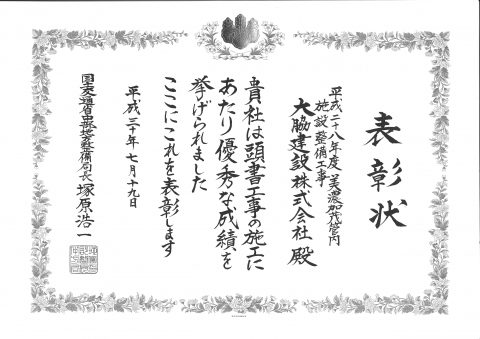 表彰状
平成二十八年度 美濃加茂管内
施設整備工事
大脇建設株式会社 殿
貴社は頭書工事の施工に
あたり優秀な成績を
挙げられました
ここにこれを表彰します
平成三十年七月十九日
国土交通省中部地方整備局長 塚原浩一